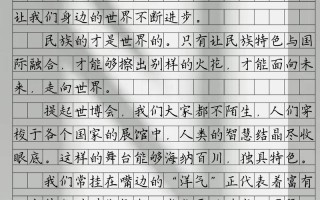 让我们身边的世界不断进步。
民族的才是世界的。只有让民族特色与国
际融合，才能够擦出别样的火花，才能面向未
来，走向世界。
提起世博会，我们大家都不陌生，人们穿
梭于各个国家的展馆中，人类的智慧结晶尽收
眼底。这样的舞台能够海纳百川，独具特色。
我们常挂在嘴边的“洋气”正代表着富有